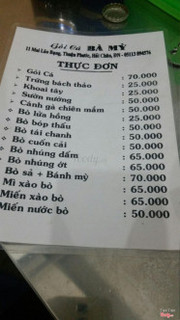 Gỏi Cá BÀ MỸ
THỰC ĐƠN
- Gỏi Cá : 70.000
- Trứng bách thảo : 25.000
- Khoai tây : 25.000
- Sườn nướng : 50.000
- Cánh gà chiên mắm : 50.000
- Bò lửa hồng : 50.000
- Bò bóp thấu : 50.000
- Bò tái chanh : 50.000
- Bò cuốn cải : 50.000
- Bò nhúng dấm : 65.000
- Bò nhúng ớt : 65.000
- Bò sả + Bánh mỳ : 70.000
Mì xào bò : 65.000
Miến xào bò : 65.000
Miến nước bò : 50.000